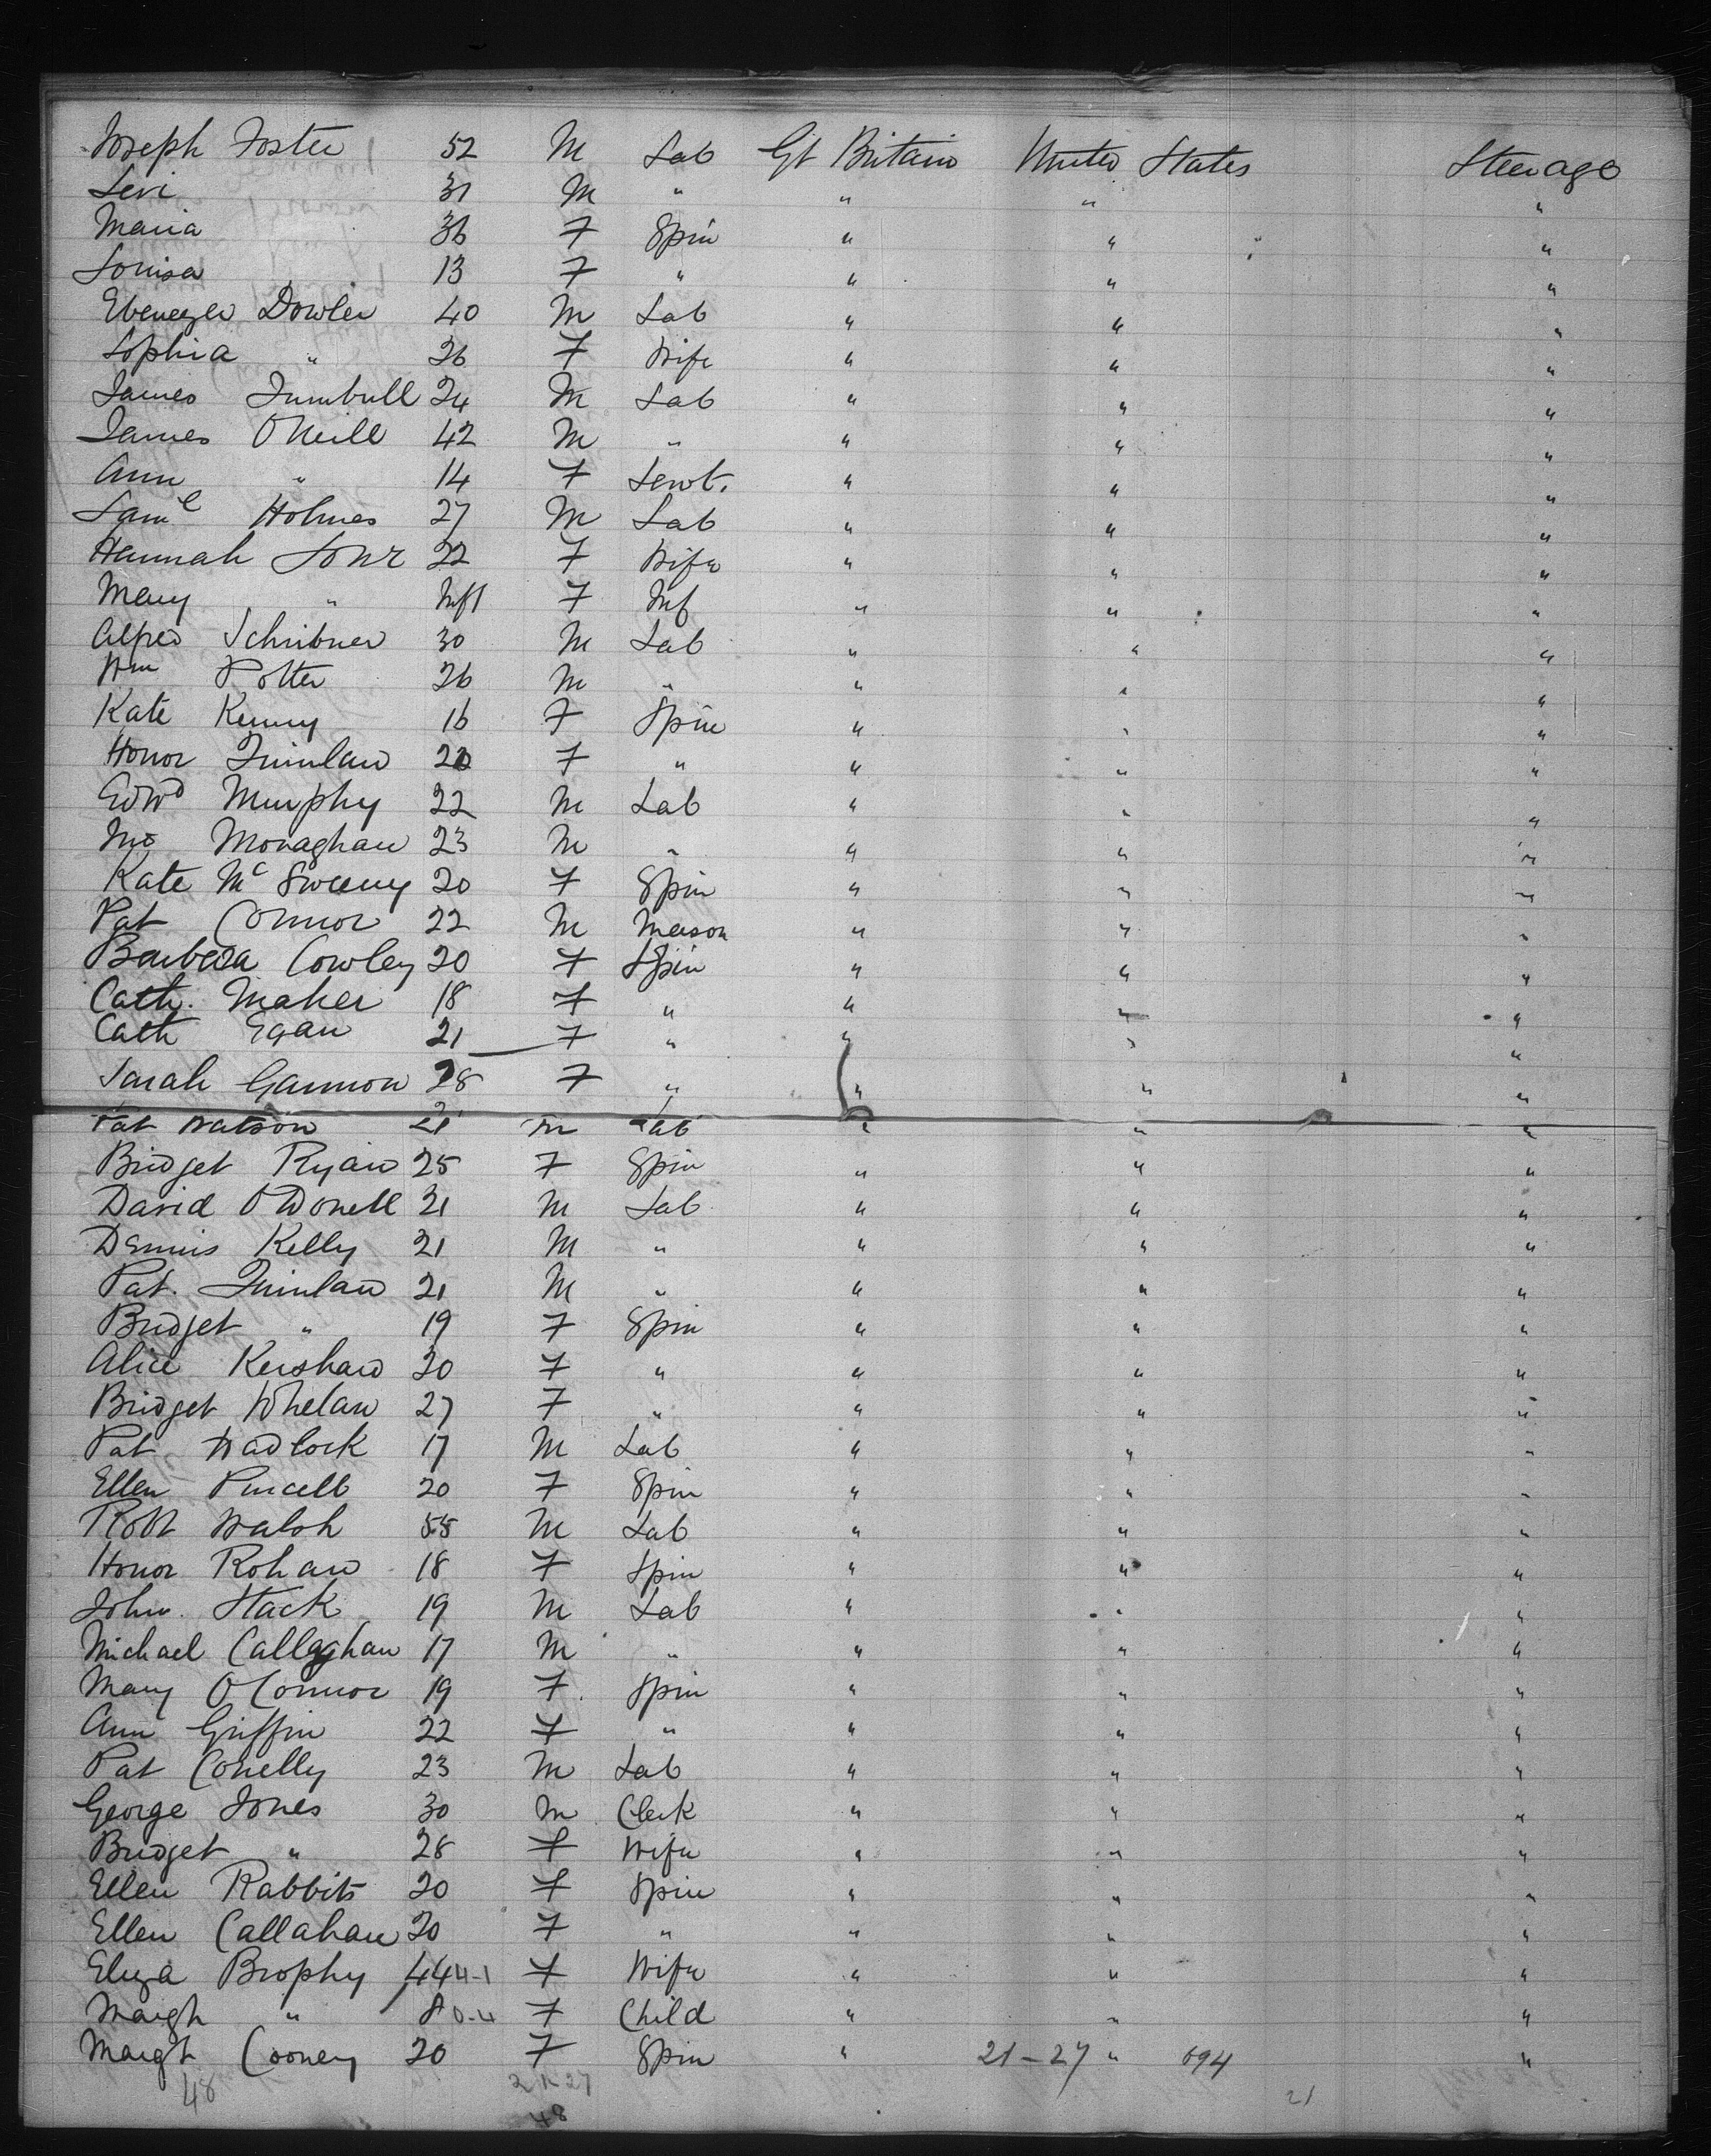 Joseph Foster 52 M Lab Gt Britain United States Steerage
Levi 31 M " " " "
Maria 36 F Spin " " "
Louisa 13 F " " " "
Ebenezer Dowler 40 M Lab " " "
Sophia " 36 F Wife " " "
James Turnbull 24 M Lab " " "
James O'Neill 42 M " " " "
Ann " 14 F Servt. " " "
Saml Holmes 27 M Lab " " "
Hannah 22 F Wife " " "
Mary " Inft F Inf " " "
Alfred Schribner 30 M Lab " " "
Wm Potter 26 M " " " "
Kate Kenny 16 F Spin " " "
Honor Quinlan F " " " "
Edwd Murphy 22 M Lab " " "
Jno Monaghan 23 M " " " "
Kate McSweeny 20 F Spin " " "
Pat Connor 22 M Mason " " "
Barbera Cowley 20 F Spin " " "
Cath. Maher 18 F " " " "
Cath Egan 21 F " " " "
Sarah Gannon 28 F " " " "
Pat Watson 21 M Lab " " "
Bridget Ryan 25 F Spin " " "
David O'Donell 21 M Lab " " "
Dennis Kelly 21 M " " " "
Pat. Quinlan 21 M " " " "
Bridget " 19 F Spin " " "
Alice Kershaw 20 F " " " "
Bridget Whelan 27 F " " " "
Pat Wadlock 17 M Lab " " "
Ellen Purcell 20 F Spin " " "
Robt Walsh 55 M Lab " " "
Honor Rohan 18 F Spin " " "
John Stack 19 M Lab " " "
Michael Callaghan 17 M " " " "
Mary O'Connor 19 F Spin " " "
Ann Griffin 22 F " " " "
Pat Conelly 23 M Lab " " "
George Jones 30 M Clerk " " "
Bridget " 28 F Wife " " "
Ellen Rabbits 20 F Spin " " "
Ellen Callahan 20 F " " " "
Eliza Brophy 44 44-1 F Wife " " "
Margh " 8 0-4 F Child " " "
Margt Cooney 20 F Spin " 21-27 " 694 "
48 21-27 21
48